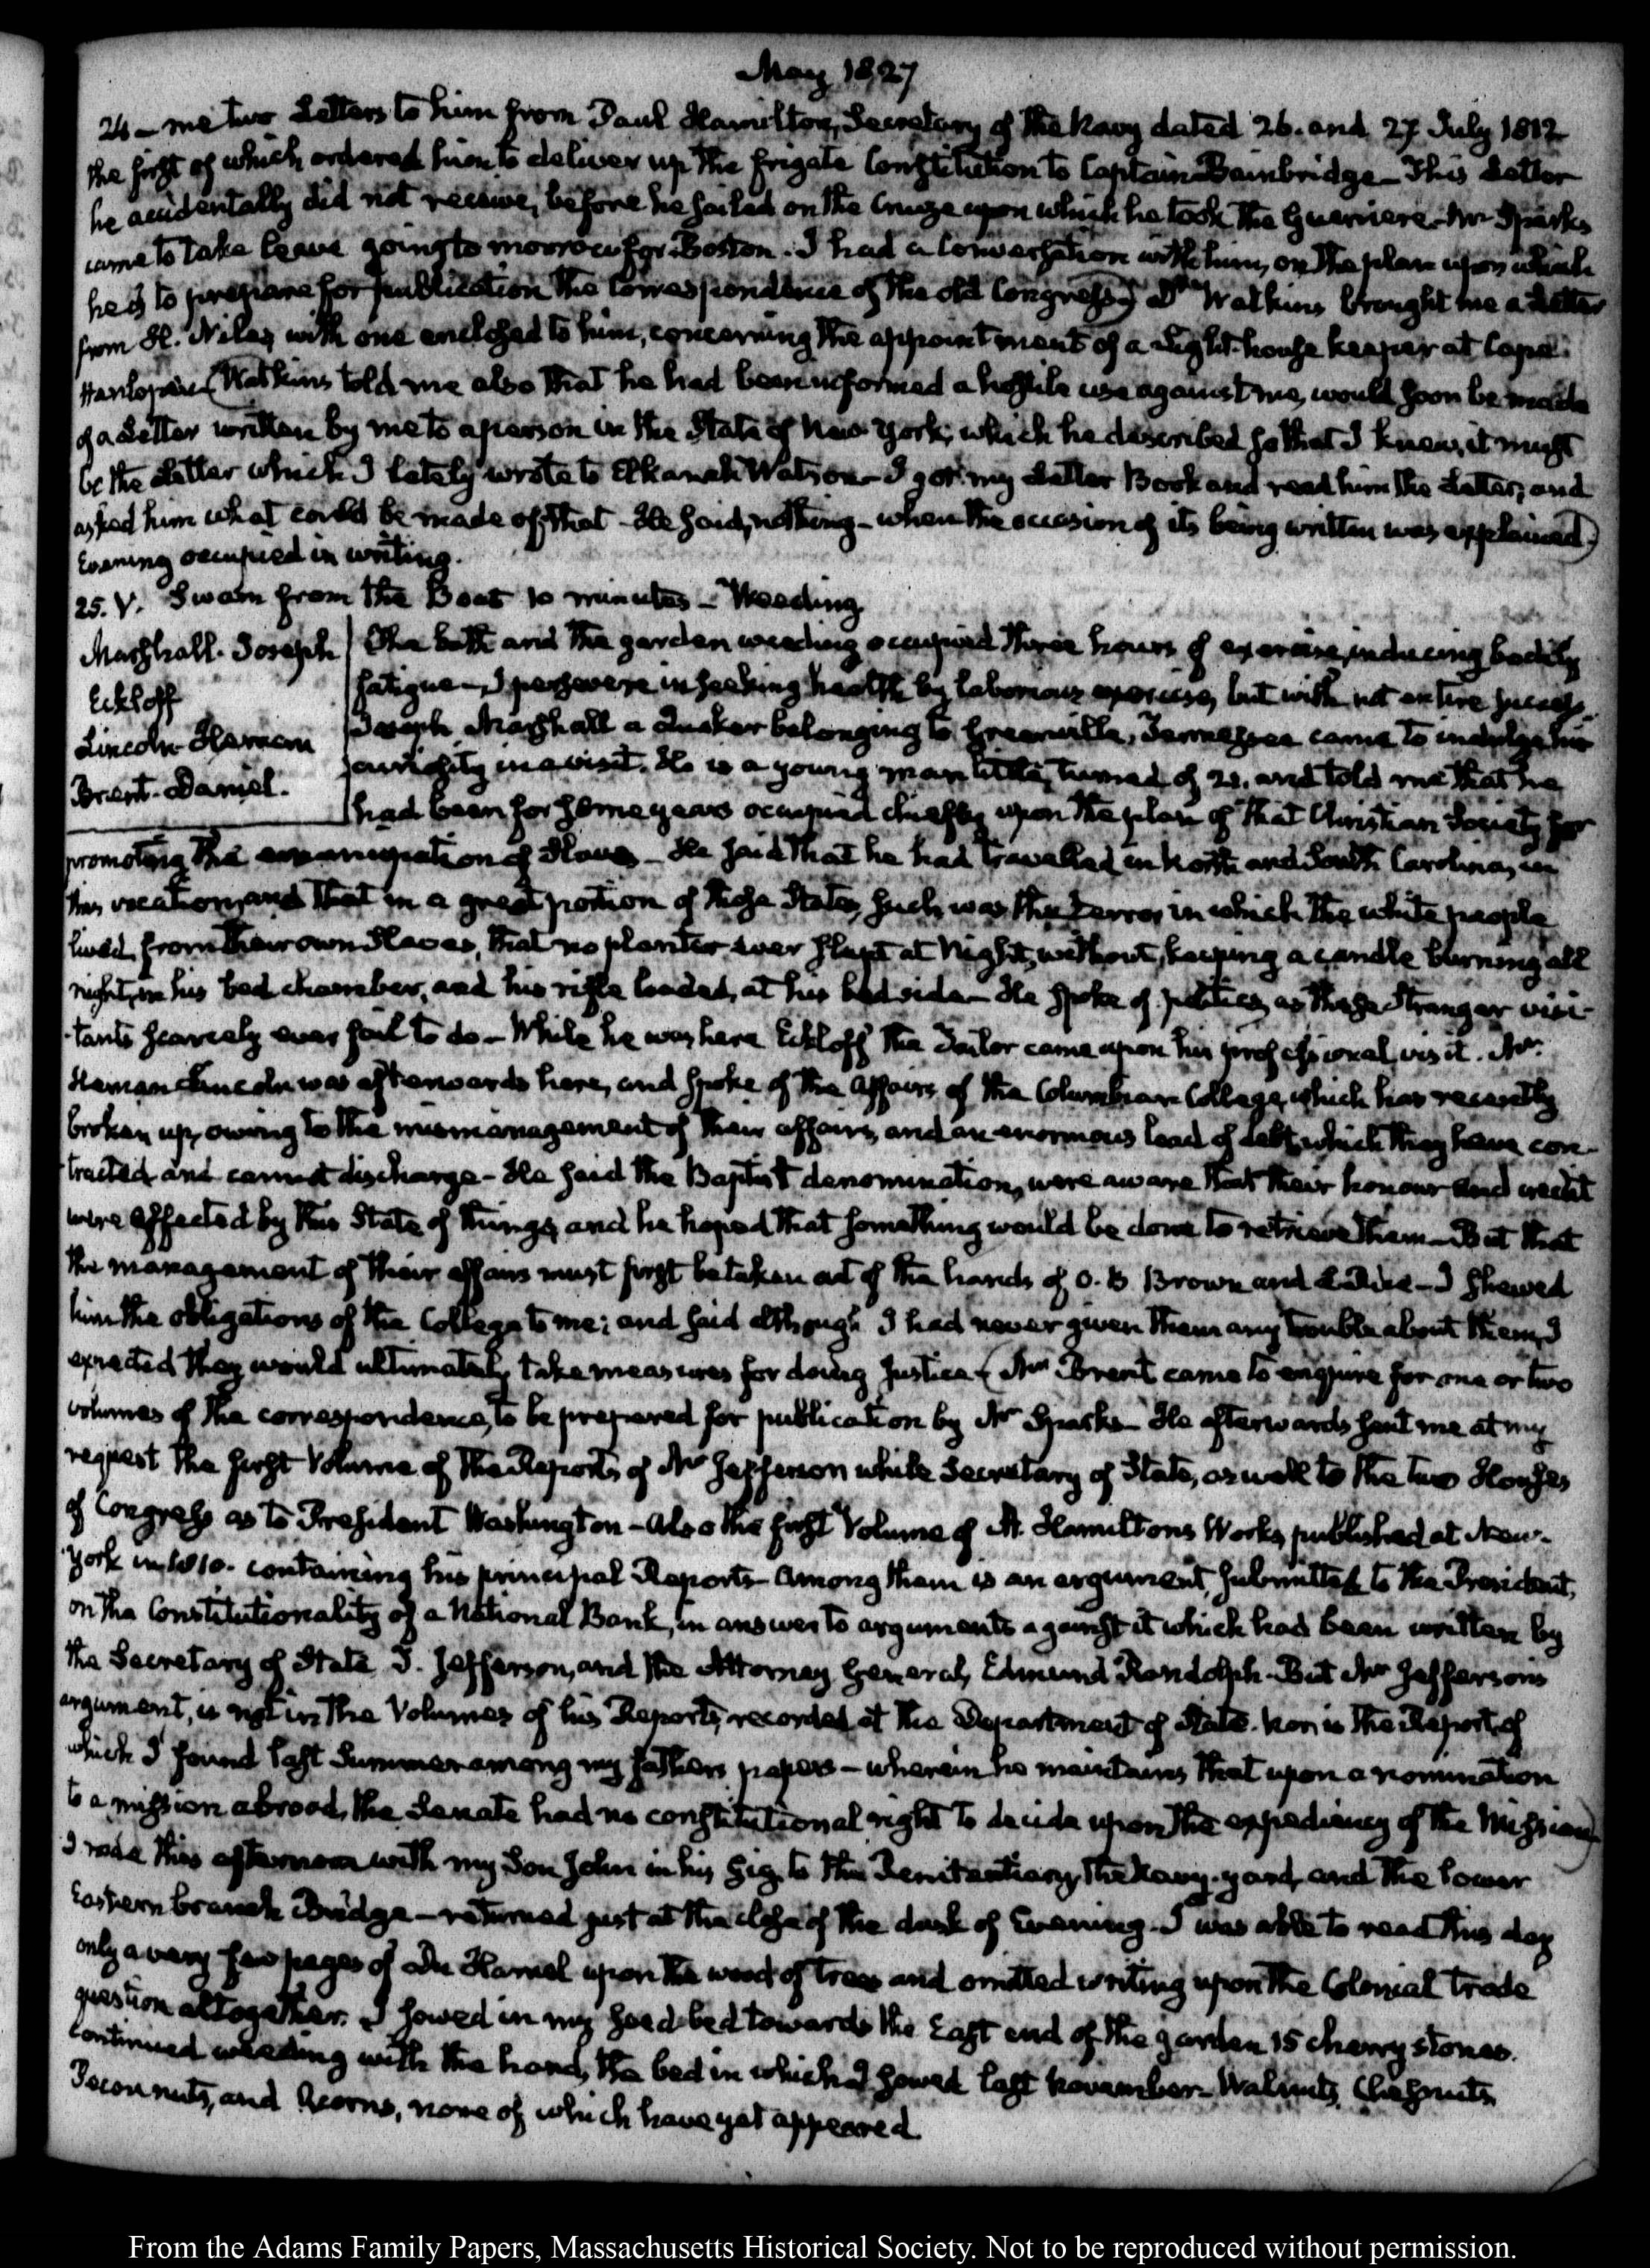 May 1827
24 - me two Letters to him from Paul Hamilton, Secretary of the Navy dated 26. and 27 July 1812
the first of which ordered him to deliver up the frigate Constitution to Captain Bainbridge - This Letter
he accidentally did not receive, before he sailed on the Cruize upon which he took the Guerriere - Mr Sparks
came to take leave going to morrow for Boston. I had a conversation with him, on the plan upon which
he is to prepare for publication the correspondence of the old Congress) Dr Watkins brought me a Letter
from H. Niles with one enclosed to him, concerning the appointment of a Light-house keeper at Cape
Henlopen (Watkins told me also that he had been informed a hostile use against me, would soon be made
of a Letter written by me to a person in the State of New York, which he described so that I knew, it must
be the Letter which I lately wrote to Elkanah Watson - I got my Letter Book and read him the Letter, and
asked him what could be made of that - He said, nothing - when the occasion of its being written was explained)
Evening occupied in writing.
25. V. Swam from the Boat 10 minutes - Weeding
Marshall. Joseph
Eckloff
Lincoln Heman
Brent. Daniel.
The bath and the garden weeding occupied three hours of exercise, inducing bodily
fatigue - I persevere in seeking health by laborious exercise, but with not entire success
Joseph Marshall a Quaker belonging to Greenville, Tennessee came to indulge his
curiosity in a visit. He is a young man little turned of 21. and told me that he
had been for some years occupied chiefly upon the plan of that Christian Society for
promoting the emancipation of Slaves - He said that he had travelled in North and South Carolina, in
this vocation, and that in a great portion of those States, such was the terror in which the white people
lived, from their own Slaves, that no planter ever slept at Night, without, keeping a candle burning all
night, in his bed chamber, and his rifle loaded, at his bed side - He spoke of politics, as these Stranger visi-
tants scarcely ever fail to do - While he was here Eckloff the Tailor came upon his professional visit. Mr.
Heman Lincoln was afterwards here, and spoke of the affairs of the Columbian College, which has recently
broken up, owing to the mismanagement of their affairs, and an enormous load of debt which they have con-
tracted and cannot discharge - He said the Baptist denomination, were aware that their honour and credit
were affected by this State of things, and he hoped that something would be done to retrieve them - But that
the management of their affairs must first be taken out of the hands of O. B. Brown and - I shewed
him the obligations of the College to me; and said although I had never given them any trouble about them, I
expected they would ultimately take measures for doing Justice (Mr Brent came to enquire for one or two
volumes of the correspondence, to be prepared for publication by Mr Sparks - He afterwards sent me at my
request the first Volume of the Reports of Mr Jefferson while Secretary of State, as well to the two Houses
of Congress as to President Washington - also the first Volume of A. Hamiltons Works, published at New-
York in 1810. containing his principal Reports - Among them is an argument, submitted to the President,
on the Constitutionality of a National Bank, in answer to arguments against it which had been written by
the Secretary of State T. Jefferson, and the Attorney General, Edmund Randolph - But Mr Jefferson's
argument, is not in the Volumes of his Reports, recorded at the Department of State. Nor is the Report, of
which I found last Summer among my fathers papers - wherein he maintains that upon a nomination
to a mission abroad, the Senate had no constitutional right to decide upon the expediency of the Mission)
I rode this afternoon with my Son John in his Gig, to the Penitentiary, the Navy-yard, and the lower
Eastern branch Bridge - returned just at the close of the dusk of Evening. I was able to read this day
only a very few pages of Du Hamel upon the wood of trees and omitted writing upon the Colonial trade
question altogether. I sowed in my seed-bed towards the East end of the garden 15 cherry stones.
Continued weeding with the hand, the bed in which I sowed last November - Walnuts, Chesnuts,
Pecan nuts, and Acorns, none of which have yet appeared.
From the Adams Family Papers, Massachusetts Historical Society. Not to be reproduced without permission.